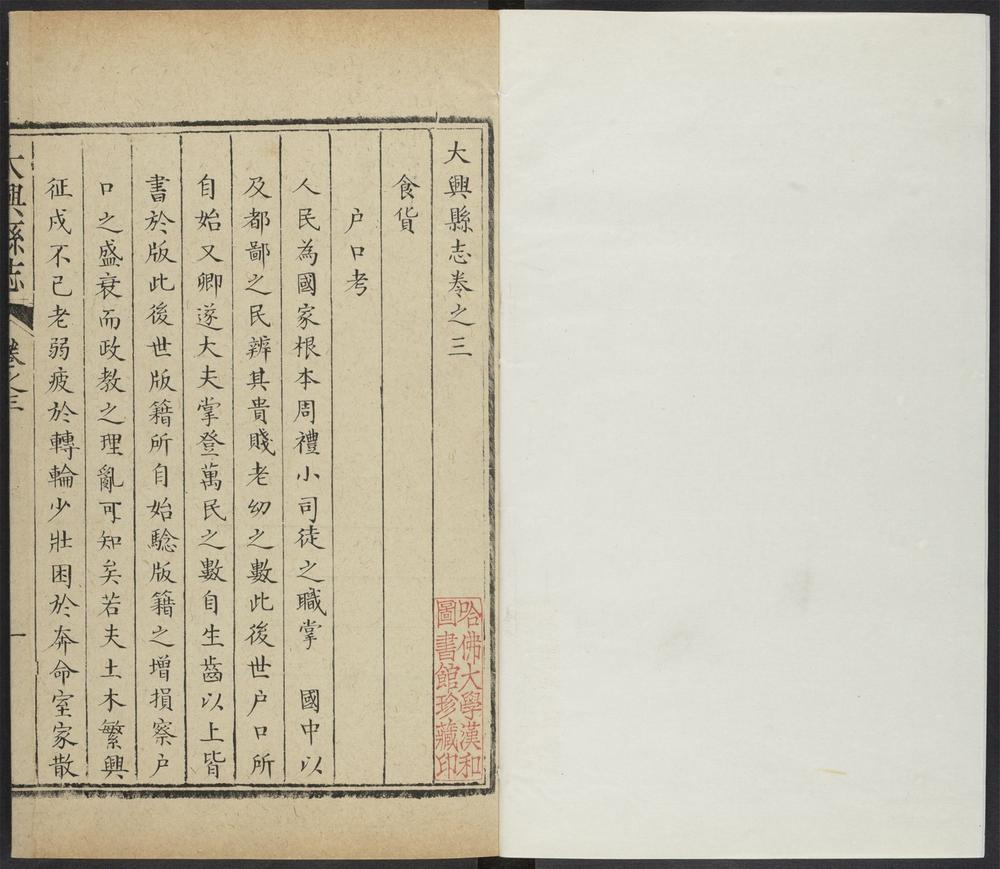 大興縣志卷之三
哈佛大學漢和
圖書館珍藏印
食貨
户口考
人民為國家根本周禮小司徒之職掌　國中以
及都鄙之民辨其貴賤老幼之數此後世户口所
自始又卿遂大夫掌登萬民之數自生齒以上皆
書於版此後世版籍所自始騐版籍之增損察户
口之盛衰而政教之理亂可知矣若夫土木繁興
征戍不已老弱疲於轉輪少壯困於奔命室家散
大興縣志　卷之三　一